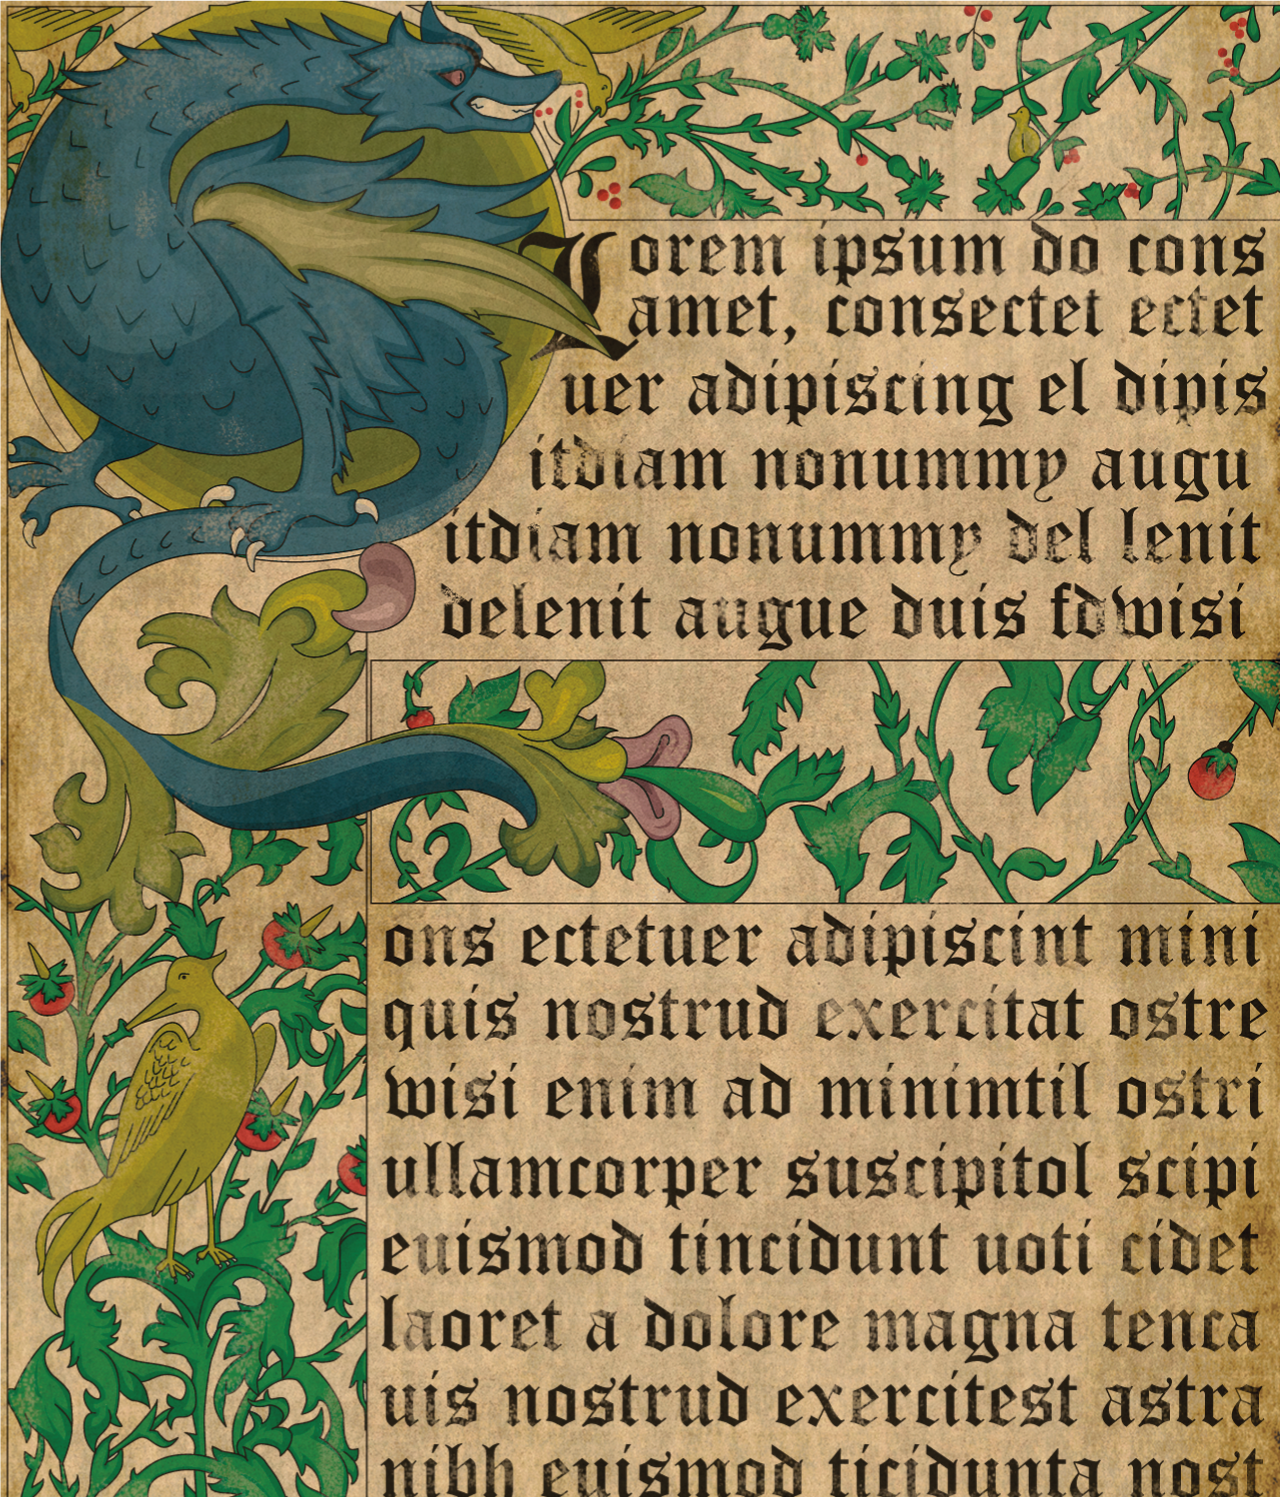 Lorem ipsum do cons
amet, consectet ectet
uer adipiscing el dipis
itdiam nonummy augu
itdiam nonummy del lenit
delenit augue duis fdwisi
ons ectetuer adipiscint mini
quis nostrud exercitat ostre
wisi enim ad minimtil ostri
ullamcorper suscipitol scipi
euismod tincidunt uoti cidet
laoret a dolore magna tenca
uis nostrud exercitest astra
nibh euismod ticidunta nost